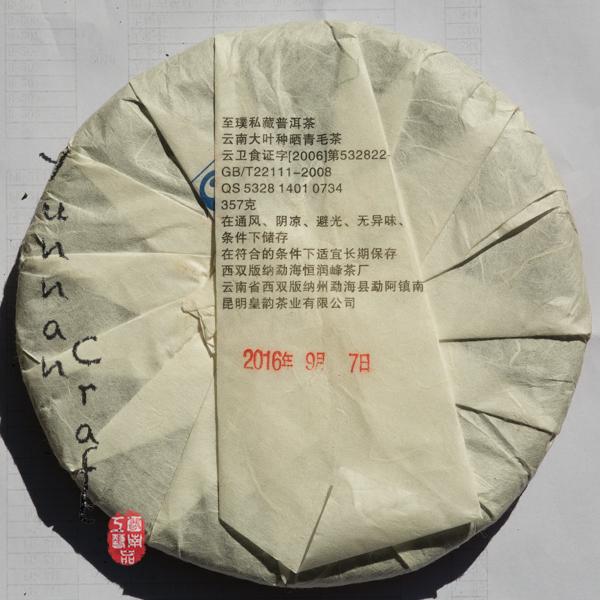 至璞私藏普洱茶
云南大叶种晒青毛茶
云卫食证字[2006]第532822-
GB/T22111-2008
QS 5328 1401 0734
357克
在通风、阴凉、避光、无异味、
条件下储存
在符合的条件下适宜长期保存
西双版纳勐海恒润峰茶厂
云南省西双版纳州勐海县勐阿镇南
昆明皇韵茶业有限公司
2016年 9月 7日
Yunnan
Craft